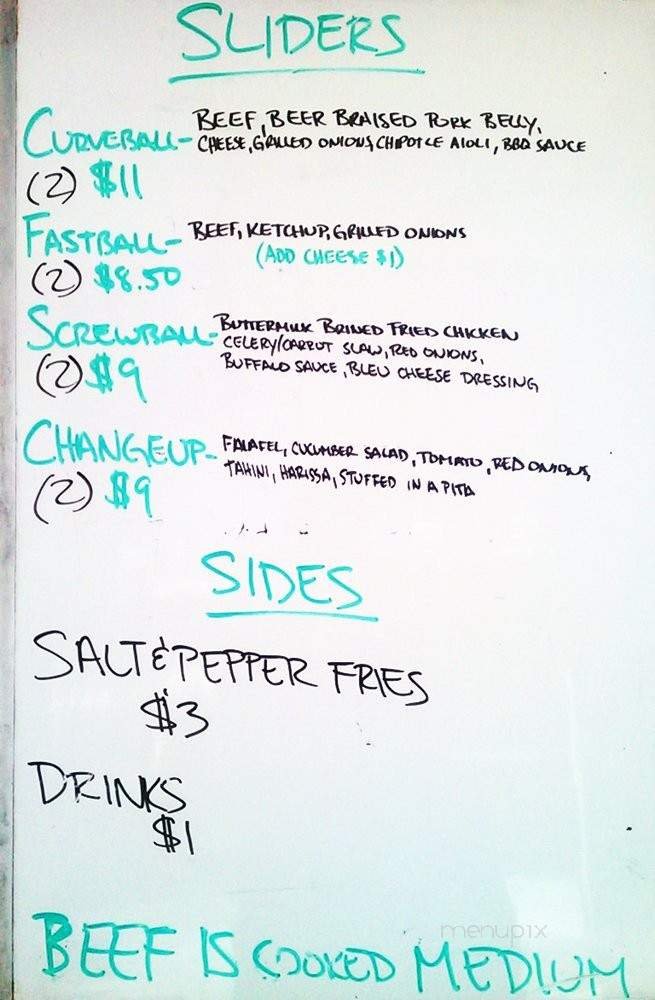 SLIDERS
CURVEBALL- BEEF, BEER BRAISED PORK BELLY,
CHEESE, GRILLED ONIONS, CHIPOTLE AIOLI, BBQ SAUCE
(2) $11
FASTBALL- BEEF, KETCHUP, GRILLED ONIONS
(ADD CHEESE $1)
(2) $8.50
SCREWBALL- BUTTERMILK BRINED FRIED CHICKEN
CELERY/CARROT SLAW, RED ONIONS,
BUFFALO SAUCE, BLEU CHEESE DRESSING
(2) $9
CHANGEUP- FALAFEL, CUCUMBER SALAD, TOMATO, RED ONIONS,
TAHINI, HARISSA, STUFFED IN A PITA
(2) $9
SIDES
SALT & PEPPER FRIES
$3
DRINKS
$1
menupix
BEEF IS COOKED MEDIUM